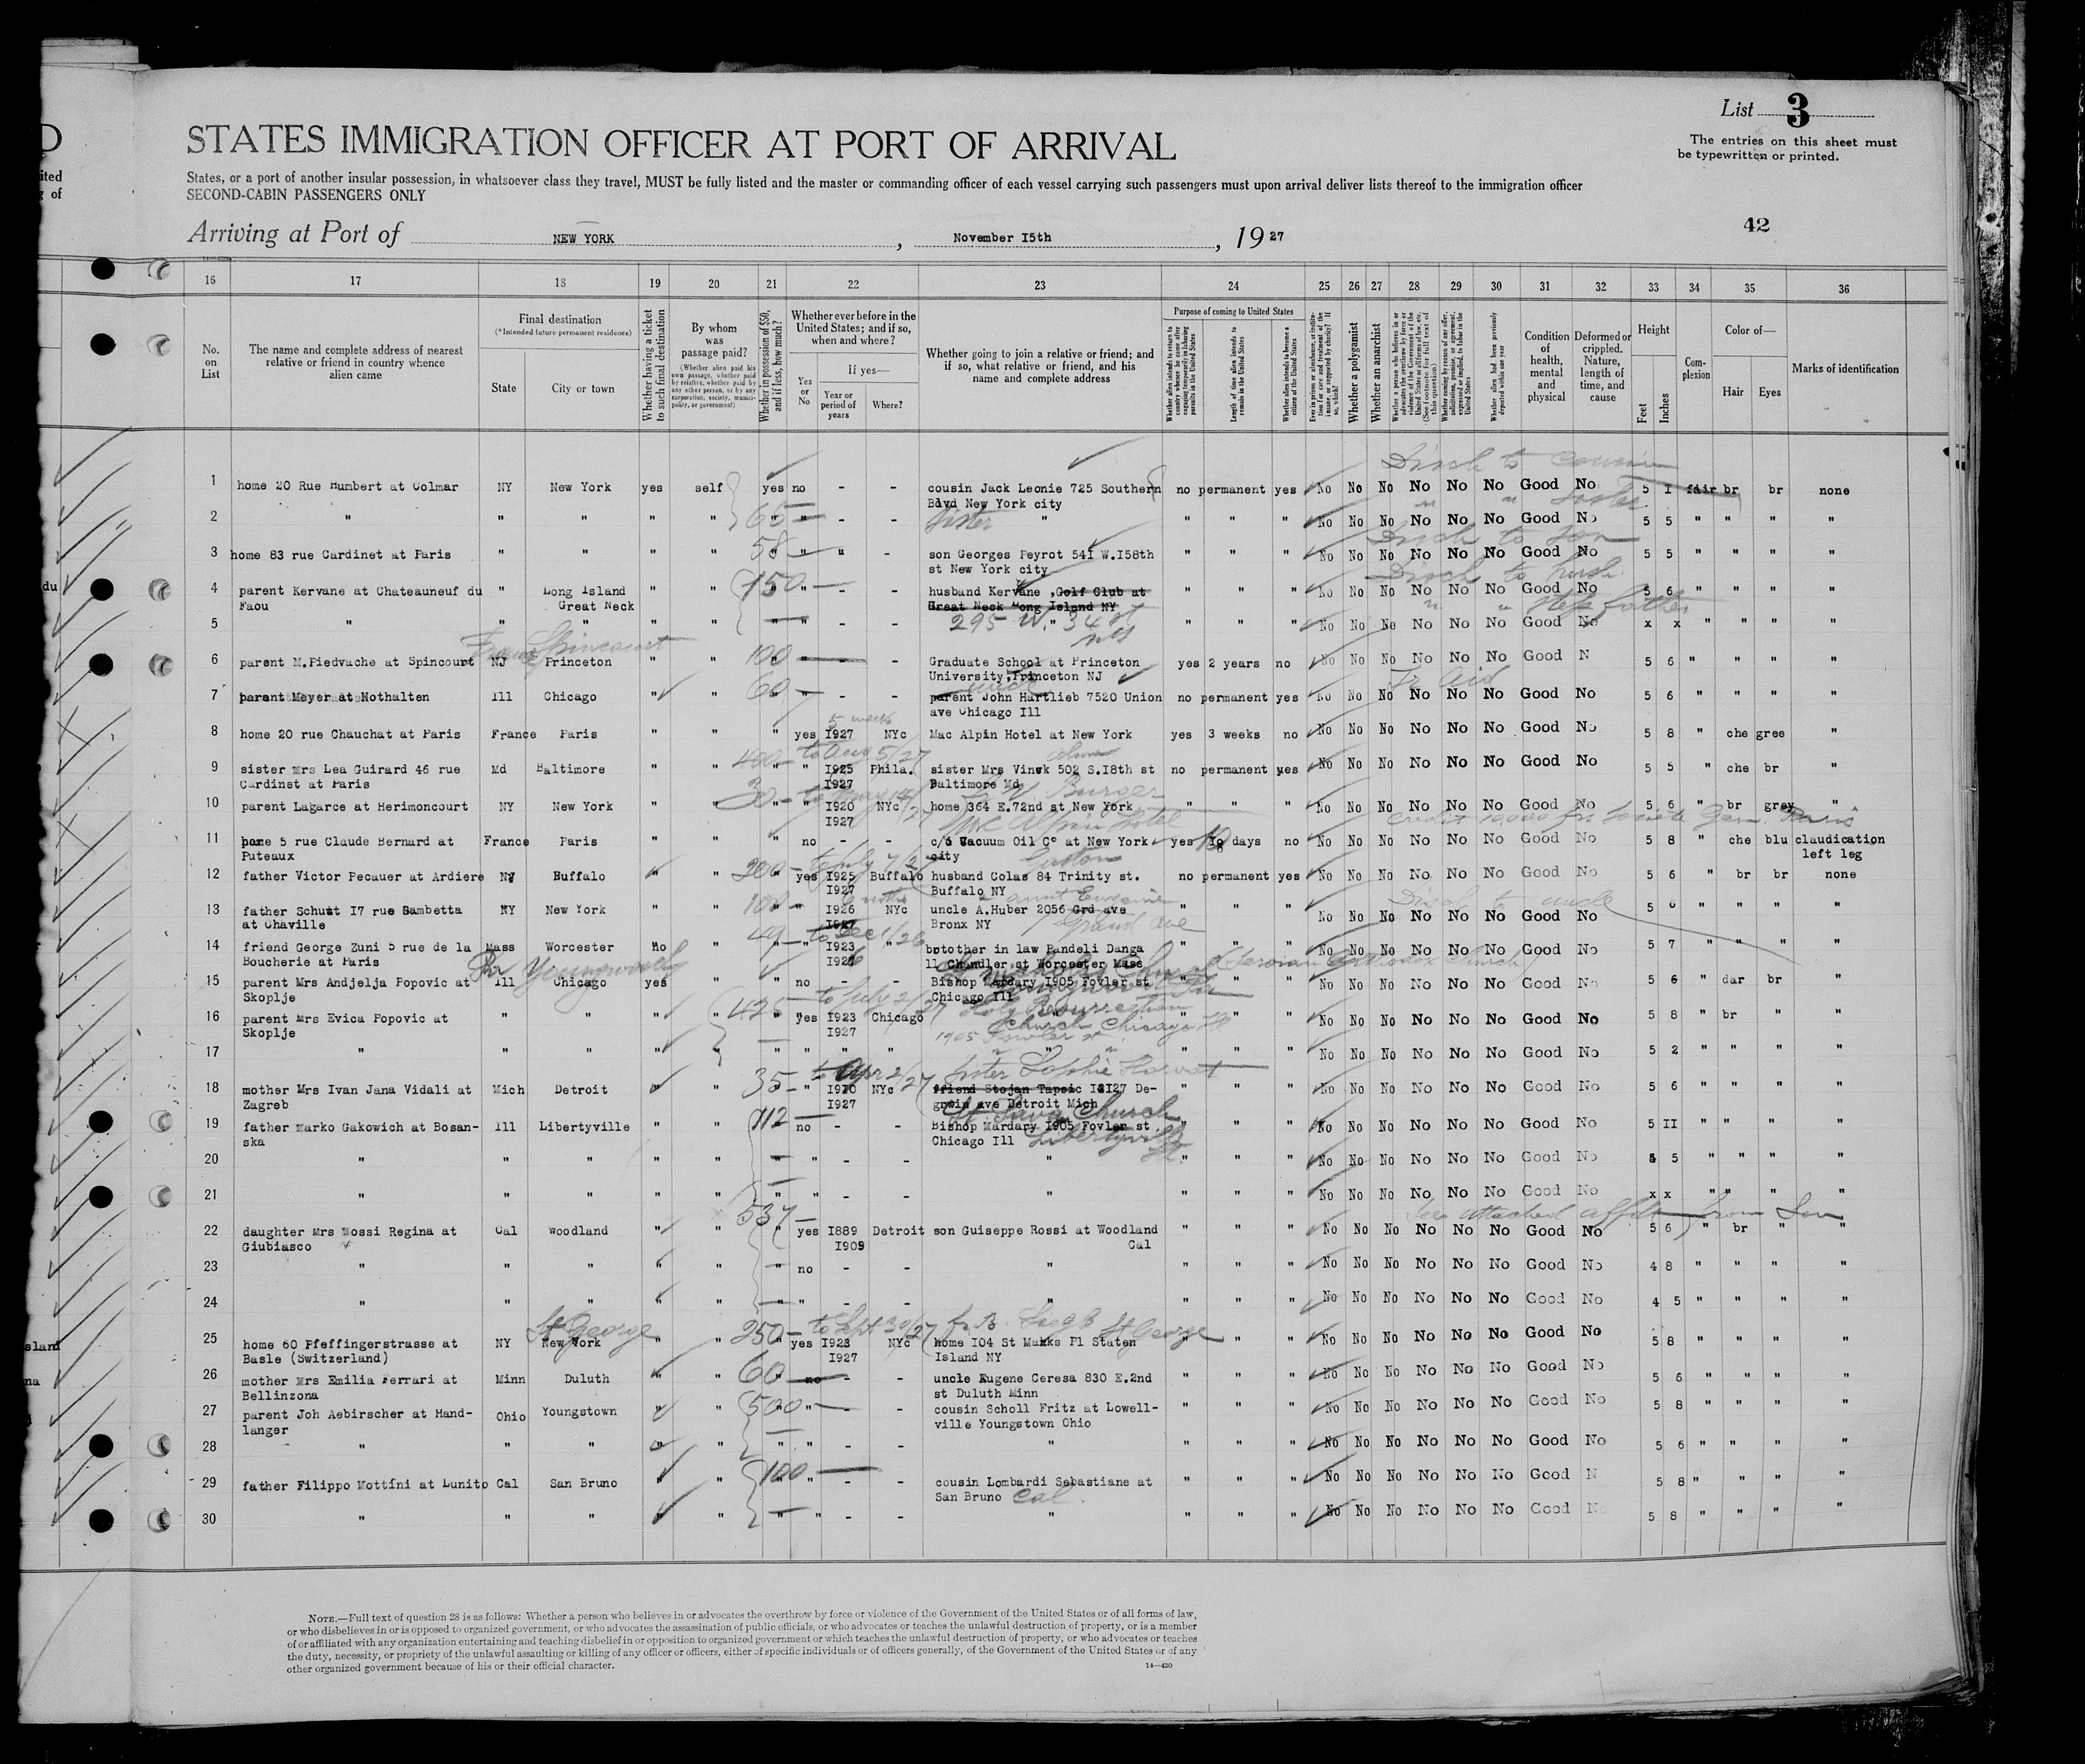 List 3
The entries on this sheet must
be typewritten or printed.
STATES IMMIGRATION OFFICER AT PORT OF ARRIVAL
States, or a port of another insular possession, in whatsoever class they travel, MUST be fully listed and the master or commanding officer of each vessel carrying such passengers must upon arrival deliver lists thereof to the immigration officer
SECOND-CABIN PASSENGERS ONLY
42
Arriving at Port of NEW YORK , November 15th , 19 27
16 17 18 19 20 21 22 23 24 25 26 27 28 29 30 31 32 33 34 35 36
No. on List
The name and complete address of nearest relative or friend in country whence alien came
Final destination
(*Intended future permanent residence)
State
City or town
Whether having a ticket to such final destination
By whom was passage paid?
(Whether alien paid his own passage, whether paid by relative, whether paid by any other person, or by any corporation, society, municipality, or government)
Whether in possession of $50, and if less, how much?
Whether ever before in the United States; and if so, when and where?
Yes or No
If yes—
Year or period of years
Where?
Whether going to join a relative or friend; and if so, what relative or friend, and his name and complete address
Purpose of coming to United States
Length of time alien intends to remain in the United States
Whether alien intends to become a citizen of the United States
Whether a polygamist
Whether an anarchist
Condition of health, mental and physical
Deformed or crippled. Nature, length of time, and cause
Height
Feet
Inches
Complexion
Color of—
Hair
Eyes
Marks of identification
Disch to cousin
1 home 20 Rue Humbert at Colmar NY New York yes self yes no - - cousin Jack Leonie 725 Southern no permanent yes No No No No No No Good No 5 1 fair br br none
Blvd New York city
2 " " " " " 65 " - - sister " " " " No No No No No No Good No 5 5 " " " "
Disch to son
3 home 83 rue Cardinet at Paris " " " " 58 " " - son Georges Peyrot 541 W.158th " " " No No No No No No Good No 5 5 " " " "
st New York city
Disch to husb.
4 parent Kervane at Chateauneuf du " Long Island " " 150 " - - husband Kervane ,Golf Club at " " " No No No No No No Good No 5 6 " " " "
Faou Great Neck Great Neck Long Island NY
" " step father
5 " " " " " " " - - 295 W. 34 st " " " No No No No No No Good No x x " " " "
6 parent M.Piedvache at Spincourt NJ Princeton " " 100 - Graduate School at Princeton yes 2 years no No No No No No No Good N 5 6 " " " "
University,Princeton NJ
7 parent Meyer at Nothalten Ill Chicago " " 60 " - - parent John Hartlieb 7520 Union no permanent yes No No No No No No Good No 5 6 " " " "
ave Chicago Ill
8 home 20 rue Chauchat at Paris France Paris " " " yes 1927 NYc Mac Alpin Hotel at New York yes 3 weeks no No No No No No No Good No 5 8 " che gree "
9 sister Mrs Lea Guirard 46 rue Md Baltimore " " 400 " 1925 Phila. sister Mrs Vinwk 502 S.18th st no permanent yes No No No No No No Good No 5 5 " che br "
Cardinet at Paris 1927 Baltimore Md
10 parent Lagarce at Herimoncourt NY New York " " 30 " 1920 NYc home 364 E.72nd st New York " " " No No No No No No Good No 5 6 " br grey "
1927
Mc Alpin Hotel
11 home 5 rue Claude Bernard at France Paris " " " no - - c/o Vacuum Oil Co at New York yes 10 days no No No No No No No Good No 5 8 " che blu claudication
Puteaux city left leg
12 father Victor Pecauer at Ardiere NY Buffalo " " 200 yes 1925 Buffalo husband Colas 84 Trinity st. no permanent yes No No No No No No Good No 5 6 " br br none
1927 Buffalo NY
Disch to uncle
13 father Schutt 17 rue Gambetta NY New York " " 100 " 1926 NYc uncle A.Huber 2056 Grd ave " " " No No No No No No Good No 5 " " " "
at Chaville 1927 Bronx NY Grand ave
14 friend George Zuni 5 rue de la Mass Worcester No " 49 " 1923 " brother in law Pandeli Danga " " " No No No No No No Good No 5 7 " " " "
Boucherie at Paris 11 Chandler st Worcester Mass
15 parent Mrs Andjelja Popovic at Ill Chicago yes " " no - - Bishop Mardary 1905 Fovler st " " " No No No No No No Good No 5 6 " dar br "
Skoplje Chicago Ill
16 parent Mrs Evica Popovic at " " " " 425 yes 1923 Chicago " " " No No No No No No Good No 5 8 " br " "
Skoplje 1927 Church Chicago
17 " " " " " " " " " " " " No No No No No No Good No 5 2 " " " "
sister Sophie Horvat
18 mother Mrs Ivan Jana Vidali at Mich Detroit " " 35 " 1910 NYc friend Stojan Tapsic 18127 De- " " " No No No No No No Good No 5 6 " " " "
Zagreb 1927 ave Detroit Mich
St Sava Church
19 father Marko Gakowich at Bosan- Ill Libertyville " " 112 no - - Bishop Mardary 1905 Fovler st " " " No No No No No No Good No 5 11 " " " "
ska Chicago Ill Libertyville Ill.
20 " " " " " " " - - " " " " No No No No No No Good No 5 5 " " " "
21 " " " " " " " - - " " " " No No No No No No Good No x x " " " "
See attached affdt from son
22 daughter Mrs Mossi Regina at Cal woodland " " 537 yes 1889 Detroit son Guiseppe Rossi at Woodland " " " No No No No No No Good No 5 6 " br " "
Giubiasco 1909 Cal
23 " " " " " " no - - " " " " No No No No No No Good No 4 8 " " " "
24 " " " " " " " - - " " " " No No No No No No Good No 4 5 " " " "
St George to Sept 30/27 St George
25 home 60 Pfeffingerstrasse at NY New York " " 250 yes 1923 NYc home 104 St Marks Pl Staten " " " No No No No No No Good No 5 8 " " " "
Basle (Switzerland) 1927 Island NY
26 mother Mrs Emilia Ferrari at Minn Duluth " " 60 no - - uncle Eugene Ceresa 830 E.2nd " " " No No No No No No Good No 5 6 " " " "
Bellinzona st Duluth Minn
27 parent Joh Aebirscher at Hand- Ohio Youngstown " " 500 " - - cousin Scholl Fritz at Lowell- " " " No No No No No No Good No 5 8 " " " "
langer ville Youngstown Ohio
28 " " " " " " " - - " " " " No No No No No No Good No 5 6 " " " "
29 father Filippo Mottini at Lunito Cal San Bruno " " 100 " - - cousin Lombardi Sebastiane at " " " No No No No No No Good N 5 8 " " " "
San Bruno Cal.
30 " " " " " " " - - " " " " No No No No No No Good No 5 8 " " " "
NOTE.—Full text of question 28 is as follows: Whether a person who believes in or advocates the overthrow by force or violence of the Government of the United States or of all forms of law,
or who disbelieves in or is opposed to organized government, or who advocates the assassination of public officials, or who advocates or teaches the unlawful destruction of property, or is a member
of or affiliated with any organization entertaining and teaching disbelief in or opposition to organized government or which teaches the unlawful destruction of property, or who advocates or teaches
the duty, necessity, or propriety of the unlawful assaulting or killing of any officer or officers, either of specific individuals or of officers generally, of the Government of the United States or of any
other organized government because of his or their official character.
14—430